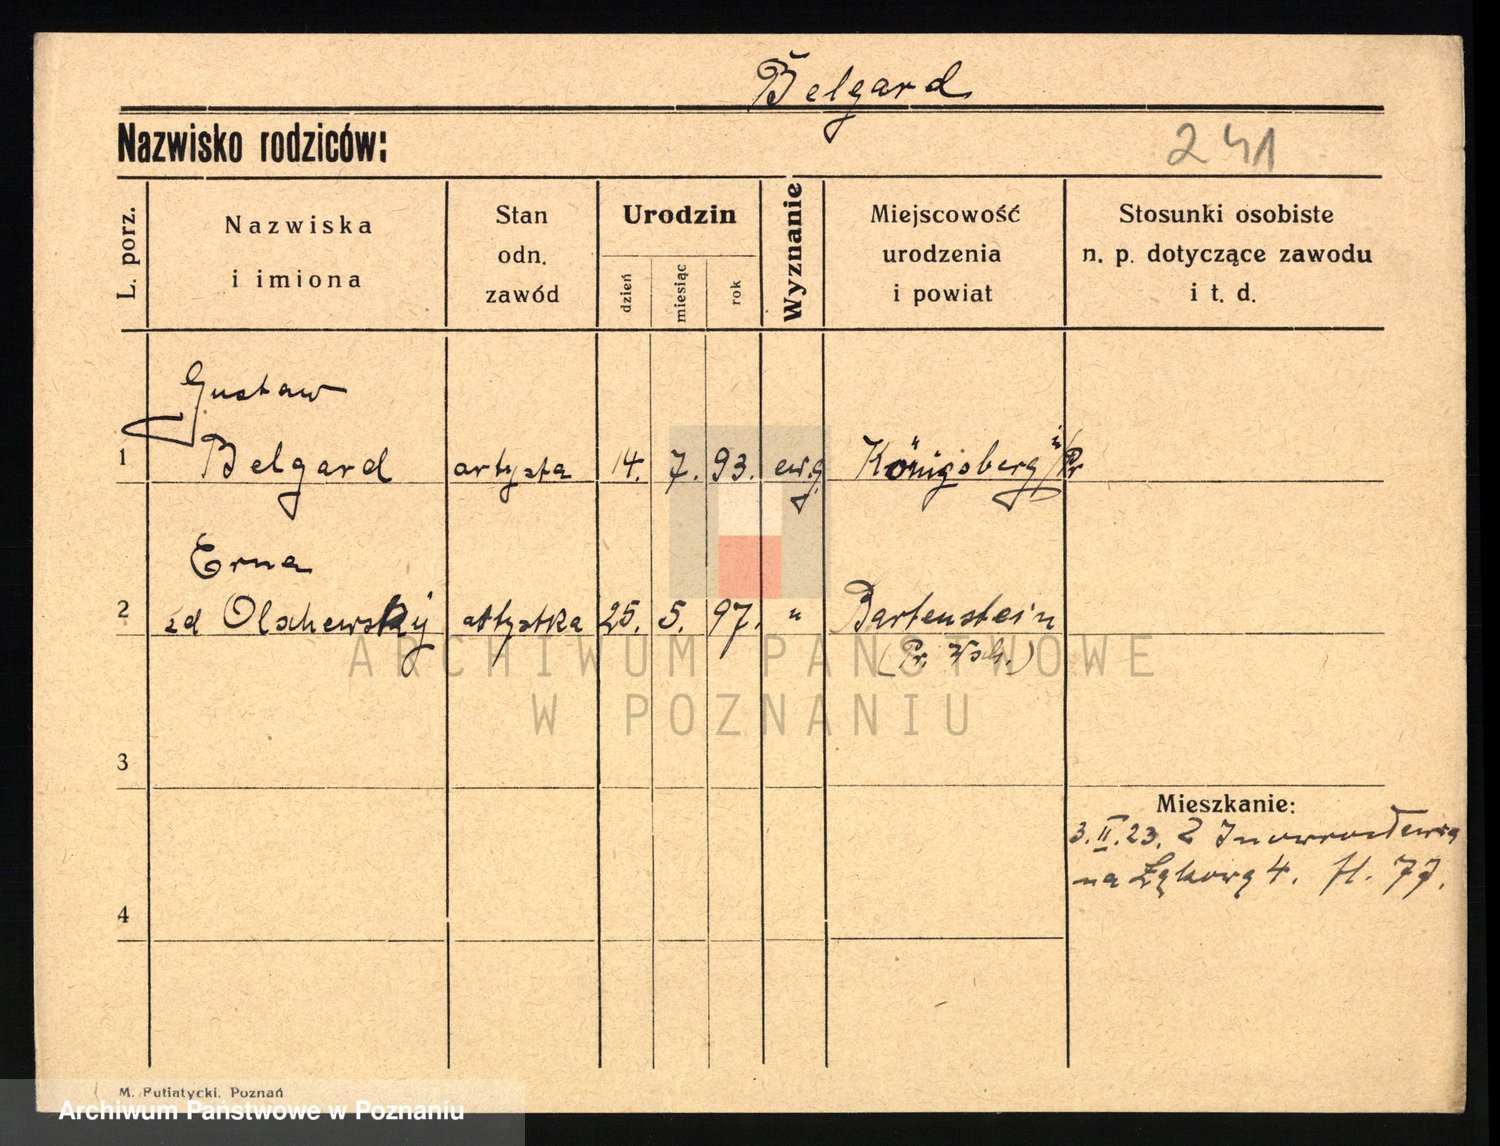 Belgard
Nazwisko rodziców:
241
L. porz.
Nazwiska
i imiona
Stan
odn.
zawód
Urodzin
dzień
miesiąc
rok
Wyznanie
Miejscowość
urodzenia
i powiat
Stosunki osobiste
n. p. dotyczące zawodu
i t. d.
Gustaw
1 Belgard artysta 14. 7. 93. ewg. Königsberg i/Pr
Erna
2 zd Olschewskÿ artystka 25. 5. 97. " Bartenstein
(Pr.
3
Mieszkanie:
3. II. 23. Z Inowrocławia
na Łąkową 4.
77.
4
M. Putiatycki. Poznań
ARCHIWUM PAŃSTWOWE
W POZNANIU
Archiwum Państwowe w Poznaniu